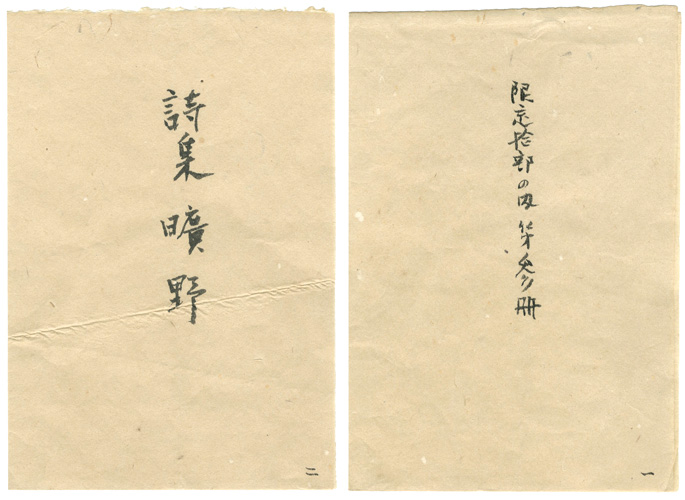 限定拾部の内 第参册
一
詩集 曠野
二